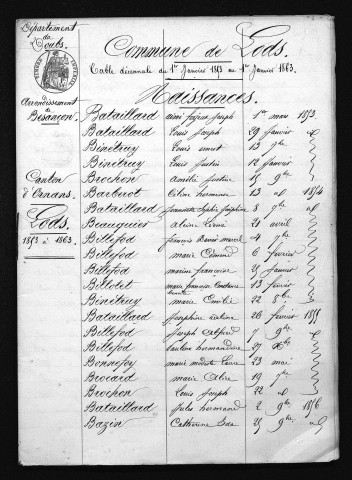 Département
du
Doubs.
Arrondissement
de
Besançon.
Canton
d'Ornans.
Lods.
1853 à 1863.
Commune de Lods.
Table décennale du 1er Janvier 1853 au 1er Janvier 1863.
Naissances.
Bataillard Joseph 1er mars 1853
Bataillard Louis Joseph 29 Janvier
Binétruy Louis 13 9bre
Binétruy Louis Justin 12 Janvier
Brochon Amélie Justine 15 9bre
Barberot Céline hermance 13 d 1854
Bataillard Joséphine 8 9bre
Beauquier 21 avril
Billefod françois marcel 4 9bre
Billefod marie 6 février
Billefod marine françoise 25 Janvier
Billolet marie françoise 13 février
Binétruy marie 22 8bre
Bataillard Joséphine 26 février 1855
Billefod Joseph Alfred 7 9bre
Billefod 27 Xbre
Bonnefoy marie 23 mai
Brocard marie 19 7bre
Brochon Louis Joseph 22 d
Bataillard Jules hermand 2 9bre 1856
Bazin Catherine 25 9bre d